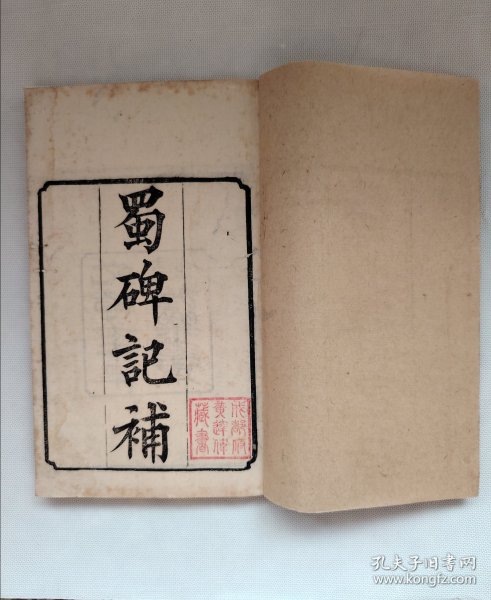 蜀碑記補
藏書
孔夫子旧书网
www.kongfz.com